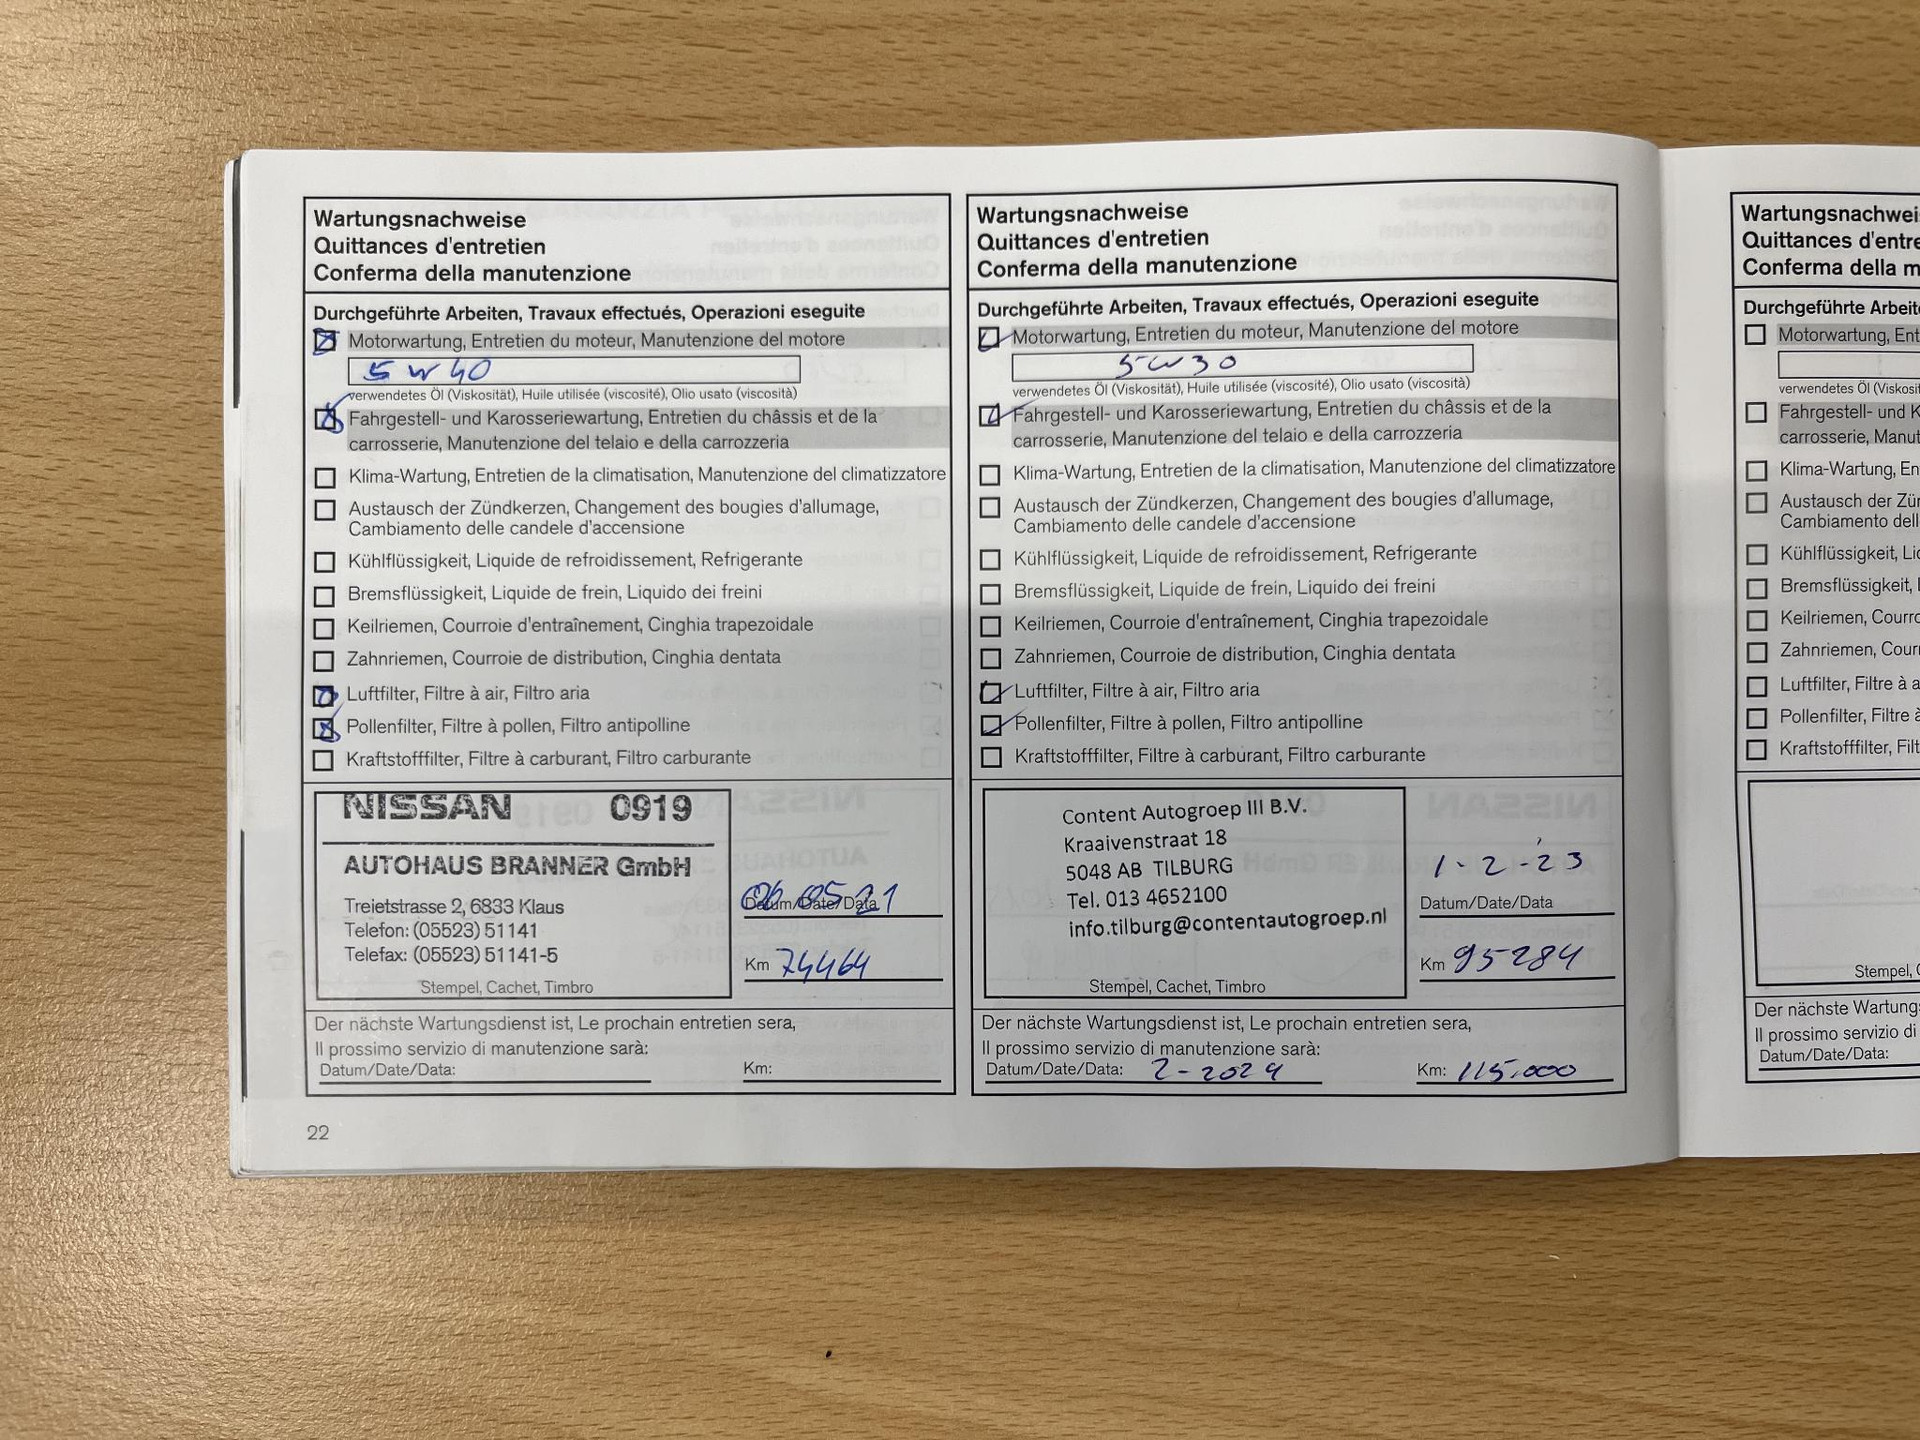 Wartungsnachweise
Quittances d'entretien
Conferma della manutenzione
Durchgeführte Arbeiten, Travaux effectués, Operazioni eseguite
Motorwartung, Entretien du moteur, Manutenzione del motore
5 W 40
verwendetes Öl (Viskosität), Huile utilisée (viscosité), Olio usato (viscosità)
Fahrgestell- und Karosseriewartung, Entretien du châssis et de la
carrosserie, Manutenzione del telaio e della carrozzeria
Klima-Wartung, Entretien de la climatisation, Manutenzione del climatizzatore
Austausch der Zündkerzen, Changement des bougies d'allumage,
Cambiamento delle candele d'accensione
Kühlflüssigkeit, Liquide de refroidissement, Refrigerante
Bremsflüssigkeit, Liquide de frein, Liquido dei freini
Keilriemen, Courroie d'entraînement, Cinghia trapezoidale
Zahnriemen, Courroie de distribution, Cinghia dentata
Luftfilter, Filtre à air, Filtro aria
Pollenfilter, Filtre à pollen, Filtro antipolline
Kraftstofffilter, Filtre à carburant, Filtro carburante
NISSAN 0919
AUTOHAUS BRANNER GmbH
Treietstrasse 2, 6833 Klaus
Telefon: (05523) 51141
Telefax: (05523) 51141-5
Stempel, Cachet, Timbro
06.05.21
Datum/Date/Data
Km 74464
Der nächste Wartungsdienst ist, Le prochain entretien sera,
Il prossimo servizio di manutenzione sarà:
Datum/Date/Data: Km:
22
Wartungsnachweise
Quittances d'entretien
Conferma della manutenzione
Durchgeführte Arbeiten, Travaux effectués, Operazioni eseguite
Motorwartung, Entretien du moteur, Manutenzione del motore
5W30
verwendetes Öl (Viskosität), Huile utilisée (viscosité), Olio usato (viscosità)
Fahrgestell- und Karosseriewartung, Entretien du châssis et de la
carrosserie, Manutenzione del telaio e della carrozzeria
Klima-Wartung, Entretien de la climatisation, Manutenzione del climatizzatore
Austausch der Zündkerzen, Changement des bougies d'allumage,
Cambiamento delle candele d'accensione
Kühlflüssigkeit, Liquide de refroidissement, Refrigerante
Bremsflüssigkeit, Liquide de frein, Liquido dei freini
Keilriemen, Courroie d'entraînement, Cinghia trapezoidale
Zahnriemen, Courroie de distribution, Cinghia dentata
Luftfilter, Filtre à air, Filtro aria
Pollenfilter, Filtre à pollen, Filtro antipolline
Kraftstofffilter, Filtre à carburant, Filtro carburante
Content Autogroep III B.V.
Kraaivenstraat 18
5048 AB TILBURG
Tel. 013 4652100
info.tilburg@contentautogroep.nl
Stempel, Cachet, Timbro
1-2-'23
Datum/Date/Data
Km 95284
Der nächste Wartungsdienst ist, Le prochain entretien sera,
Il prossimo servizio di manutenzione sarà:
Datum/Date/Data: 2-2024 Km: 115.000
Wartungsnachwei
Quittances d'entre
Conferma della m
Durchgeführte Arbeite
Motorwartung, Ent
verwendetes Öl (Viskosi
Fahrgestell- und K
carrosserie, Manut
Klima-Wartung, En
Austausch der Zün
Cambiamento dell
Kühlflüssigkeit, Lic
Bremsflüssigkeit, L
Keilriemen, Courro
Zahnriemen, Cour
Luftfilter, Filtre à a
Pollenfilter, Filtre à
Kraftstofffilter, Filt
Stempel, C
Der nächste Wartungs
Il prossimo servizio di
Datum/Date/Data: